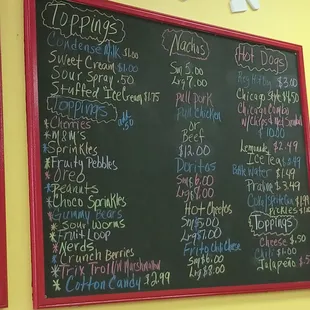 Toppings
Condense Milk $1.00
Sweet Cream $1.00
Sour Spray .50
Stuffed Ice Cream $1.75
Toppings
.50
Cherries
M&M's
Sprinkles
Fruity Pebbles
Oreo
Peanuts
Choco Sprinkles
Gummy Bears
Sour Worms
Fruit Loop
Nerds
Crunch Berries
Trix Troll/n Marshmallow
Cotton Candy $2.99
Nachos
Sm 5.00
Lrg 7.00
pull pork
Pull Chicken
or
Beef
$12.00
Doritos
Sm $6.00
Lrg $8.00
Hot Cheetos
Sm 5.00
Lrg $7.00
Frito Chili Cheese
Sm $6.00
Lrg $8.00
Hot Dogs
Reg Hot Dog $3.00
Chicago Style $4.50
Chicago Combo
$10.00
Lemonade $2.49
Ice Tea
Bottle Water
Praline
Pickles
Toppings
Cheese $.50
Chili $1.00
Jalapeño $.50